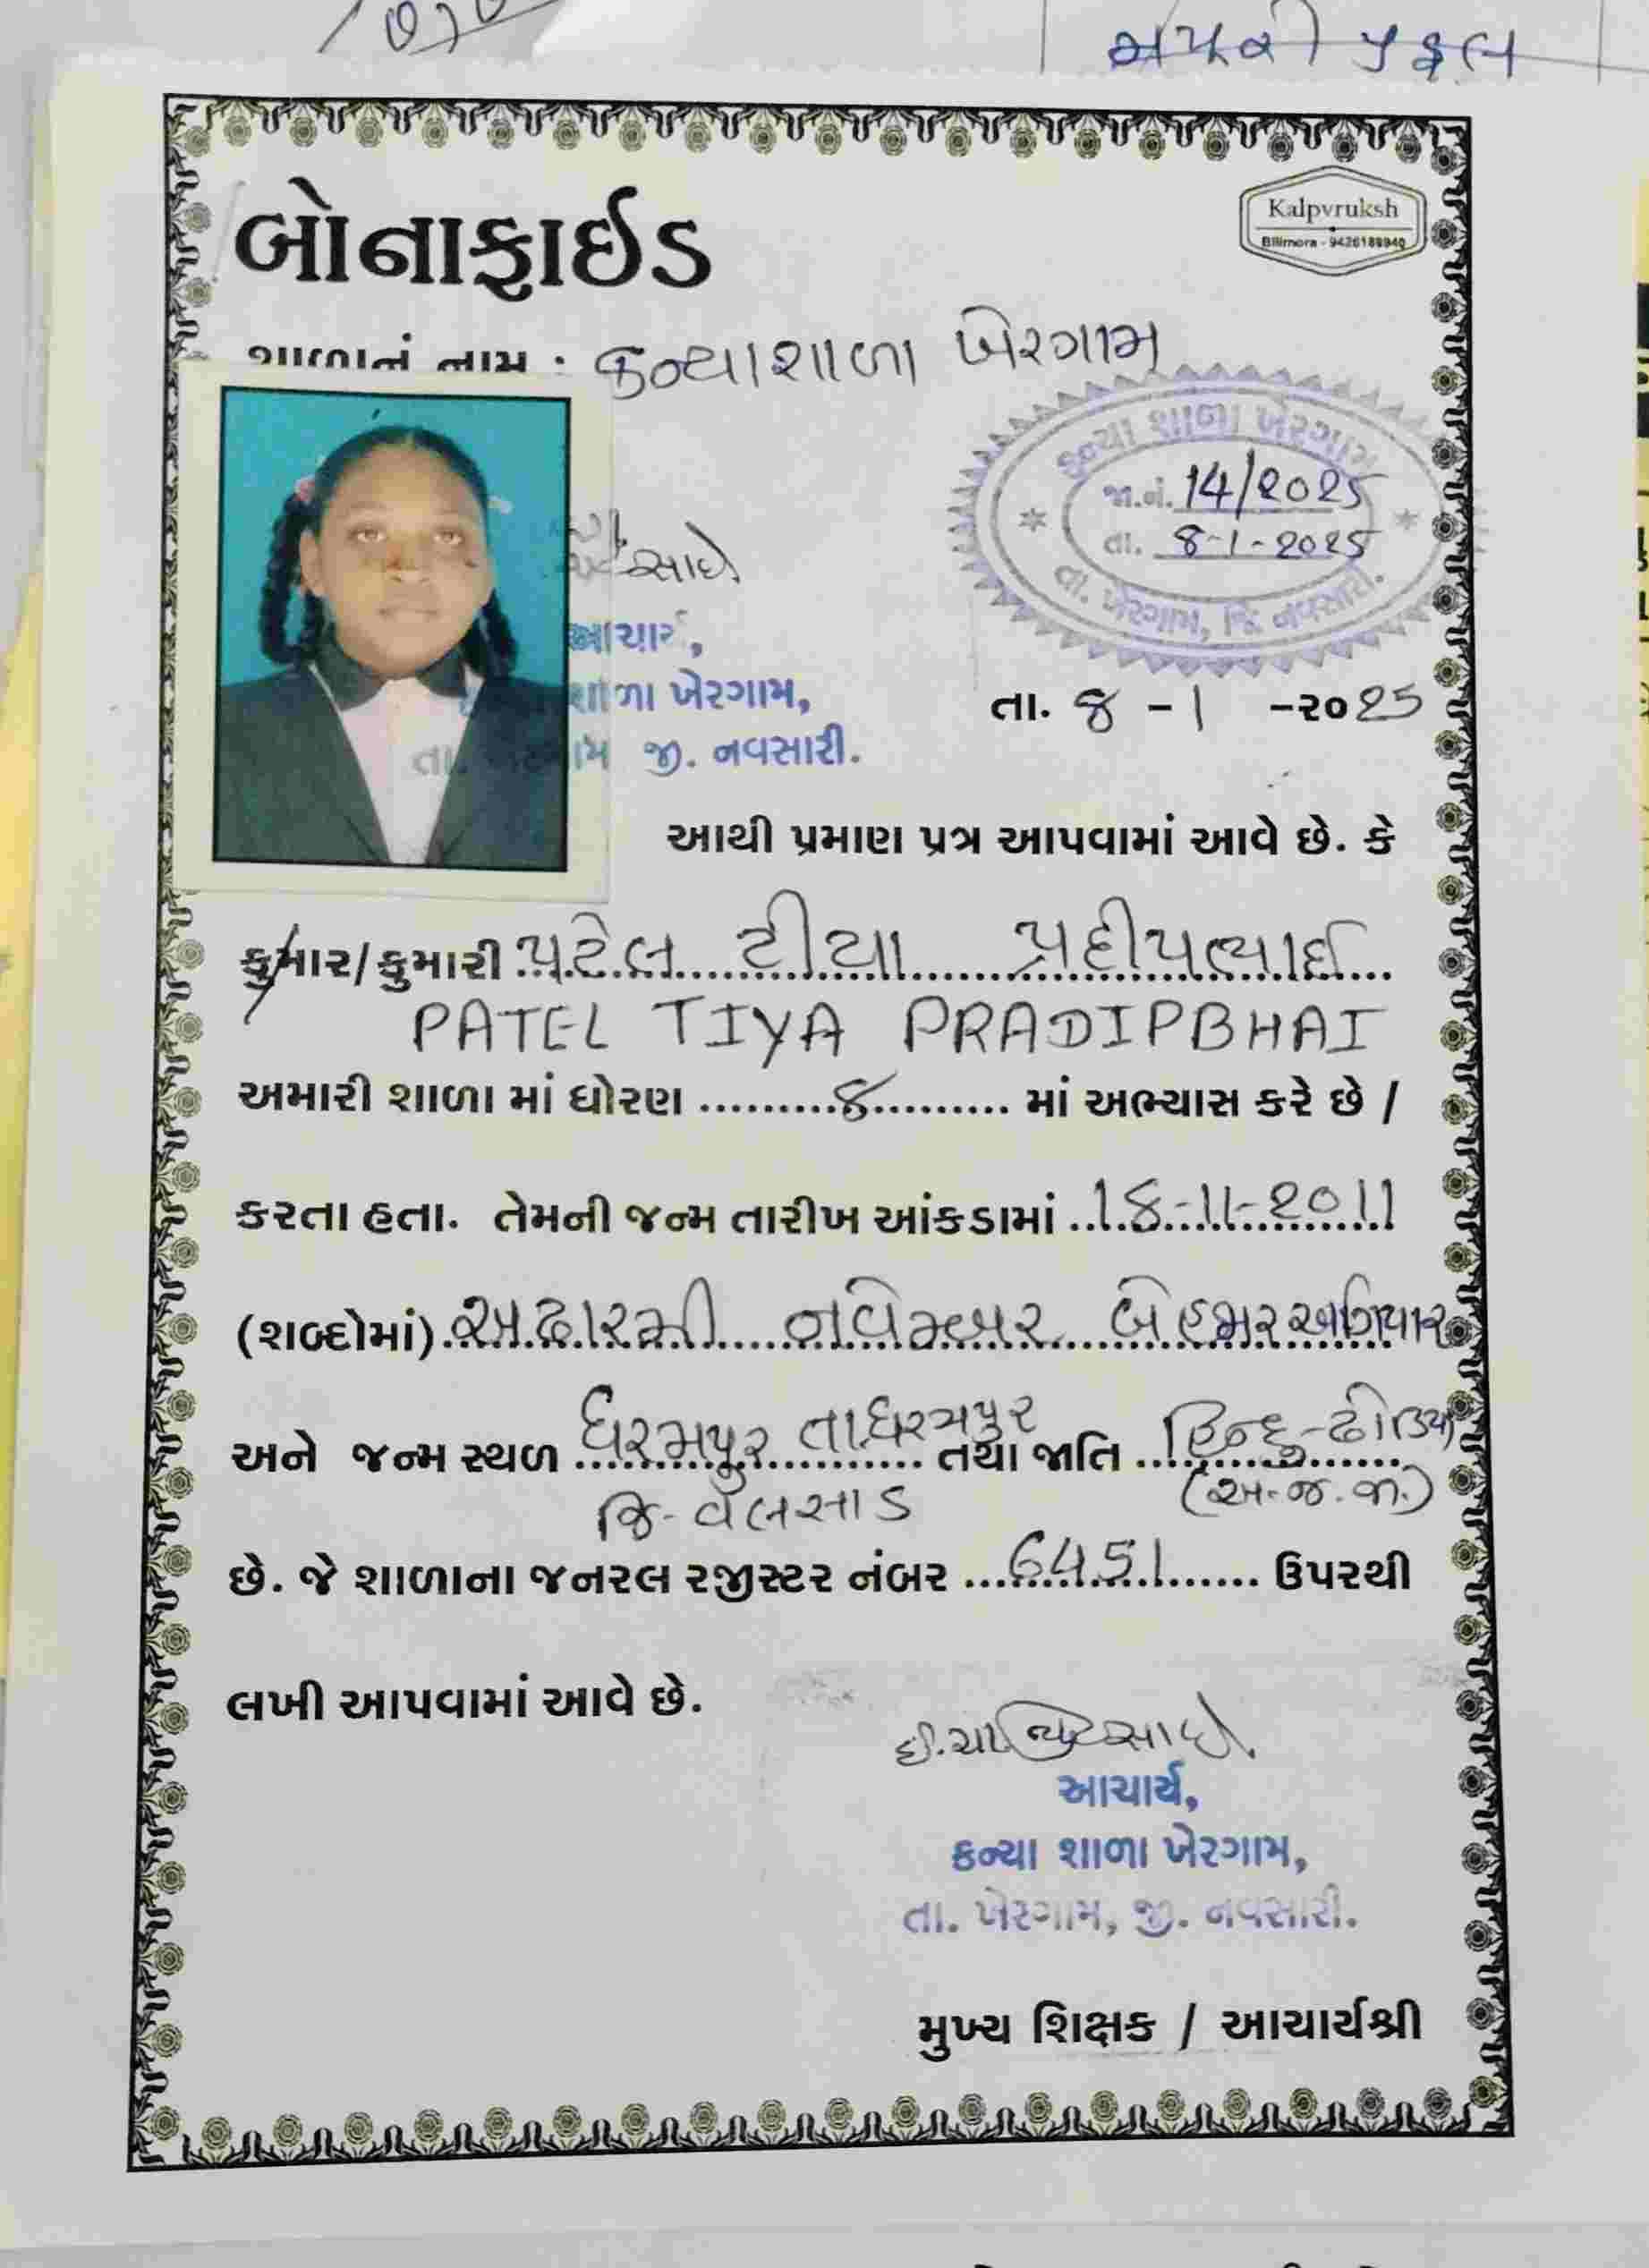 બોનાફાઈડ
Kalpvruksh
Bilimora - 9426188940
શાળાનું નામ : કન્યાશાળા ખેરગામ
કન્યા શાળા ખેરગામ
જા.નં. 14/2025
તા. 8-1-2025
તા. ખેરગામ, જિ. નવસારી.
આચાર્ય,
શાળા ખેરગામ,
તા. ખેરગામ જી. નવસારી.
તા. 8 - 1 -૨૦25
આથી પ્રમાણ પત્ર આપવામાં આવે છે. કે
કુમાર/કુમારી પટેલ ટીયા પ્રદીપભાઈ
PATEL TIYA PRADIPBHAI
અમારી શાળા માં ધોરણ ...8... માં અભ્યાસ કરે છે /
કરતા હતા. તેમની જન્મ તારીખ આંકડામાં ..18-11-2011
(શબ્દોમાં) અઢારમી નવેમ્બર બે હજાર અગિયાર
અને જન્મ સ્થળ ધરમપુર તા.ધરમપુર તથા જાતિ હિન્દુ-ઢોડિયા
જિ-વલસાડ (અ.જ.જા.)
છે. જે શાળાના જનરલ રજીસ્ટર નંબર ...6451... ઉપરથી
લખી આપવામાં આવે છે.
આચાર્ય,
કન્યા શાળા ખેરગામ,
તા. ખેરગામ, જી. નવસારી.
મુખ્ય શિક્ષક / આચાર્યશ્રી